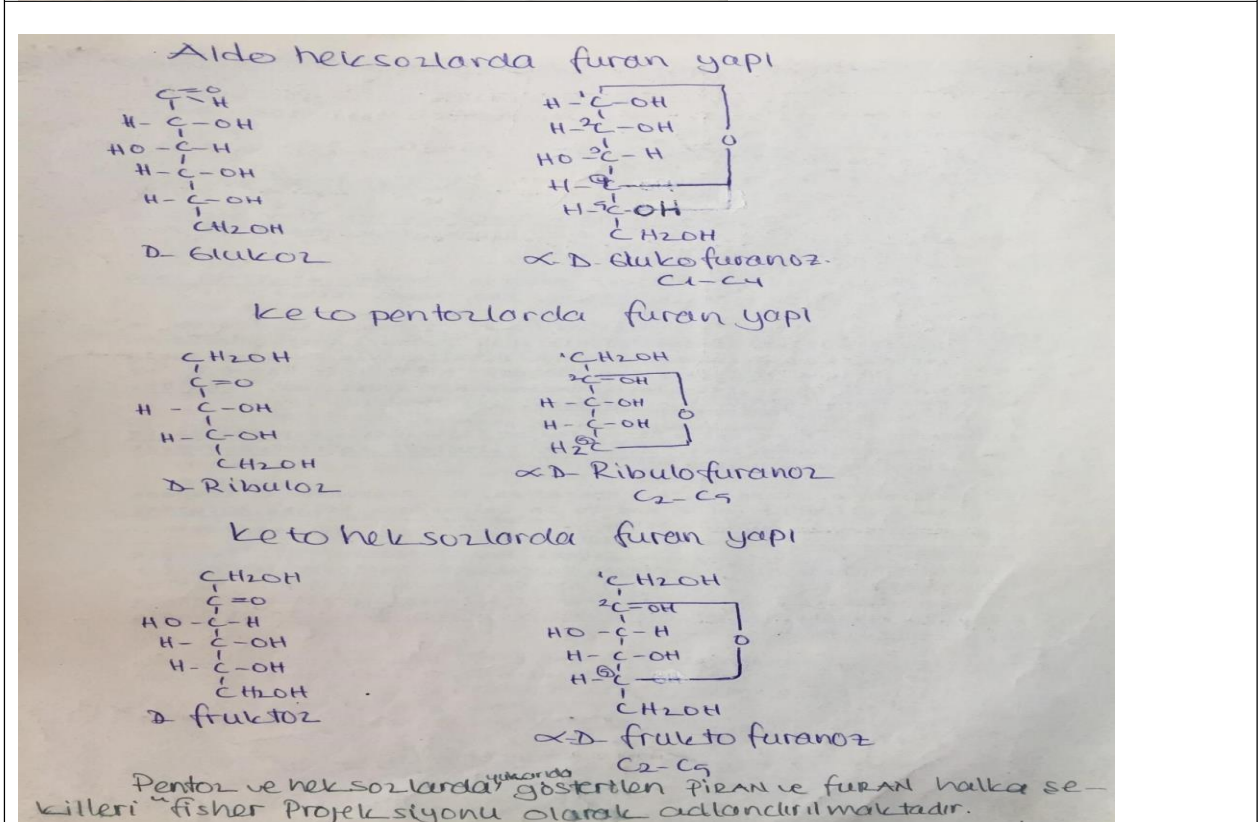 Aldo heksozlarda furan yapı
C=O
H
H-C-OH
HO-C-H
H-C-OH
H-C-OH
CH2OH
D-Glukoz
H-1C-OH
H-2C-OH
HO-3C-H
O
H-4C
H-5C-OH
CH2OH
α D-Glukofuranoz.
C1-C4
keto pentozlarda furan yapı
CH2OH
C=O
H-C-OH
H-C-OH
CH2OH
D Ribuloz
1CH2OH
2C-OH
H-C-OH
O
H-C-OH
H25C
α D-Ribulofuranoz
C2-C5
keto heksozlarda furan yapı
CH2OH
C=O
HO-C-H
H-C-OH
H-C-OH
CH2OH
D fruktoz
1CH2OH
2C-OH
HO-C-H
O
H-C-OH
H-5C
CH2OH
α-D-frukto furanoz
C2-C5
Pentoz ve heksozlarda, yukarıda gösterilen PİRAN ve fuRAN halka şe-
killeri "fisher Projeksiyonu olarak adlandırılmaktadır.